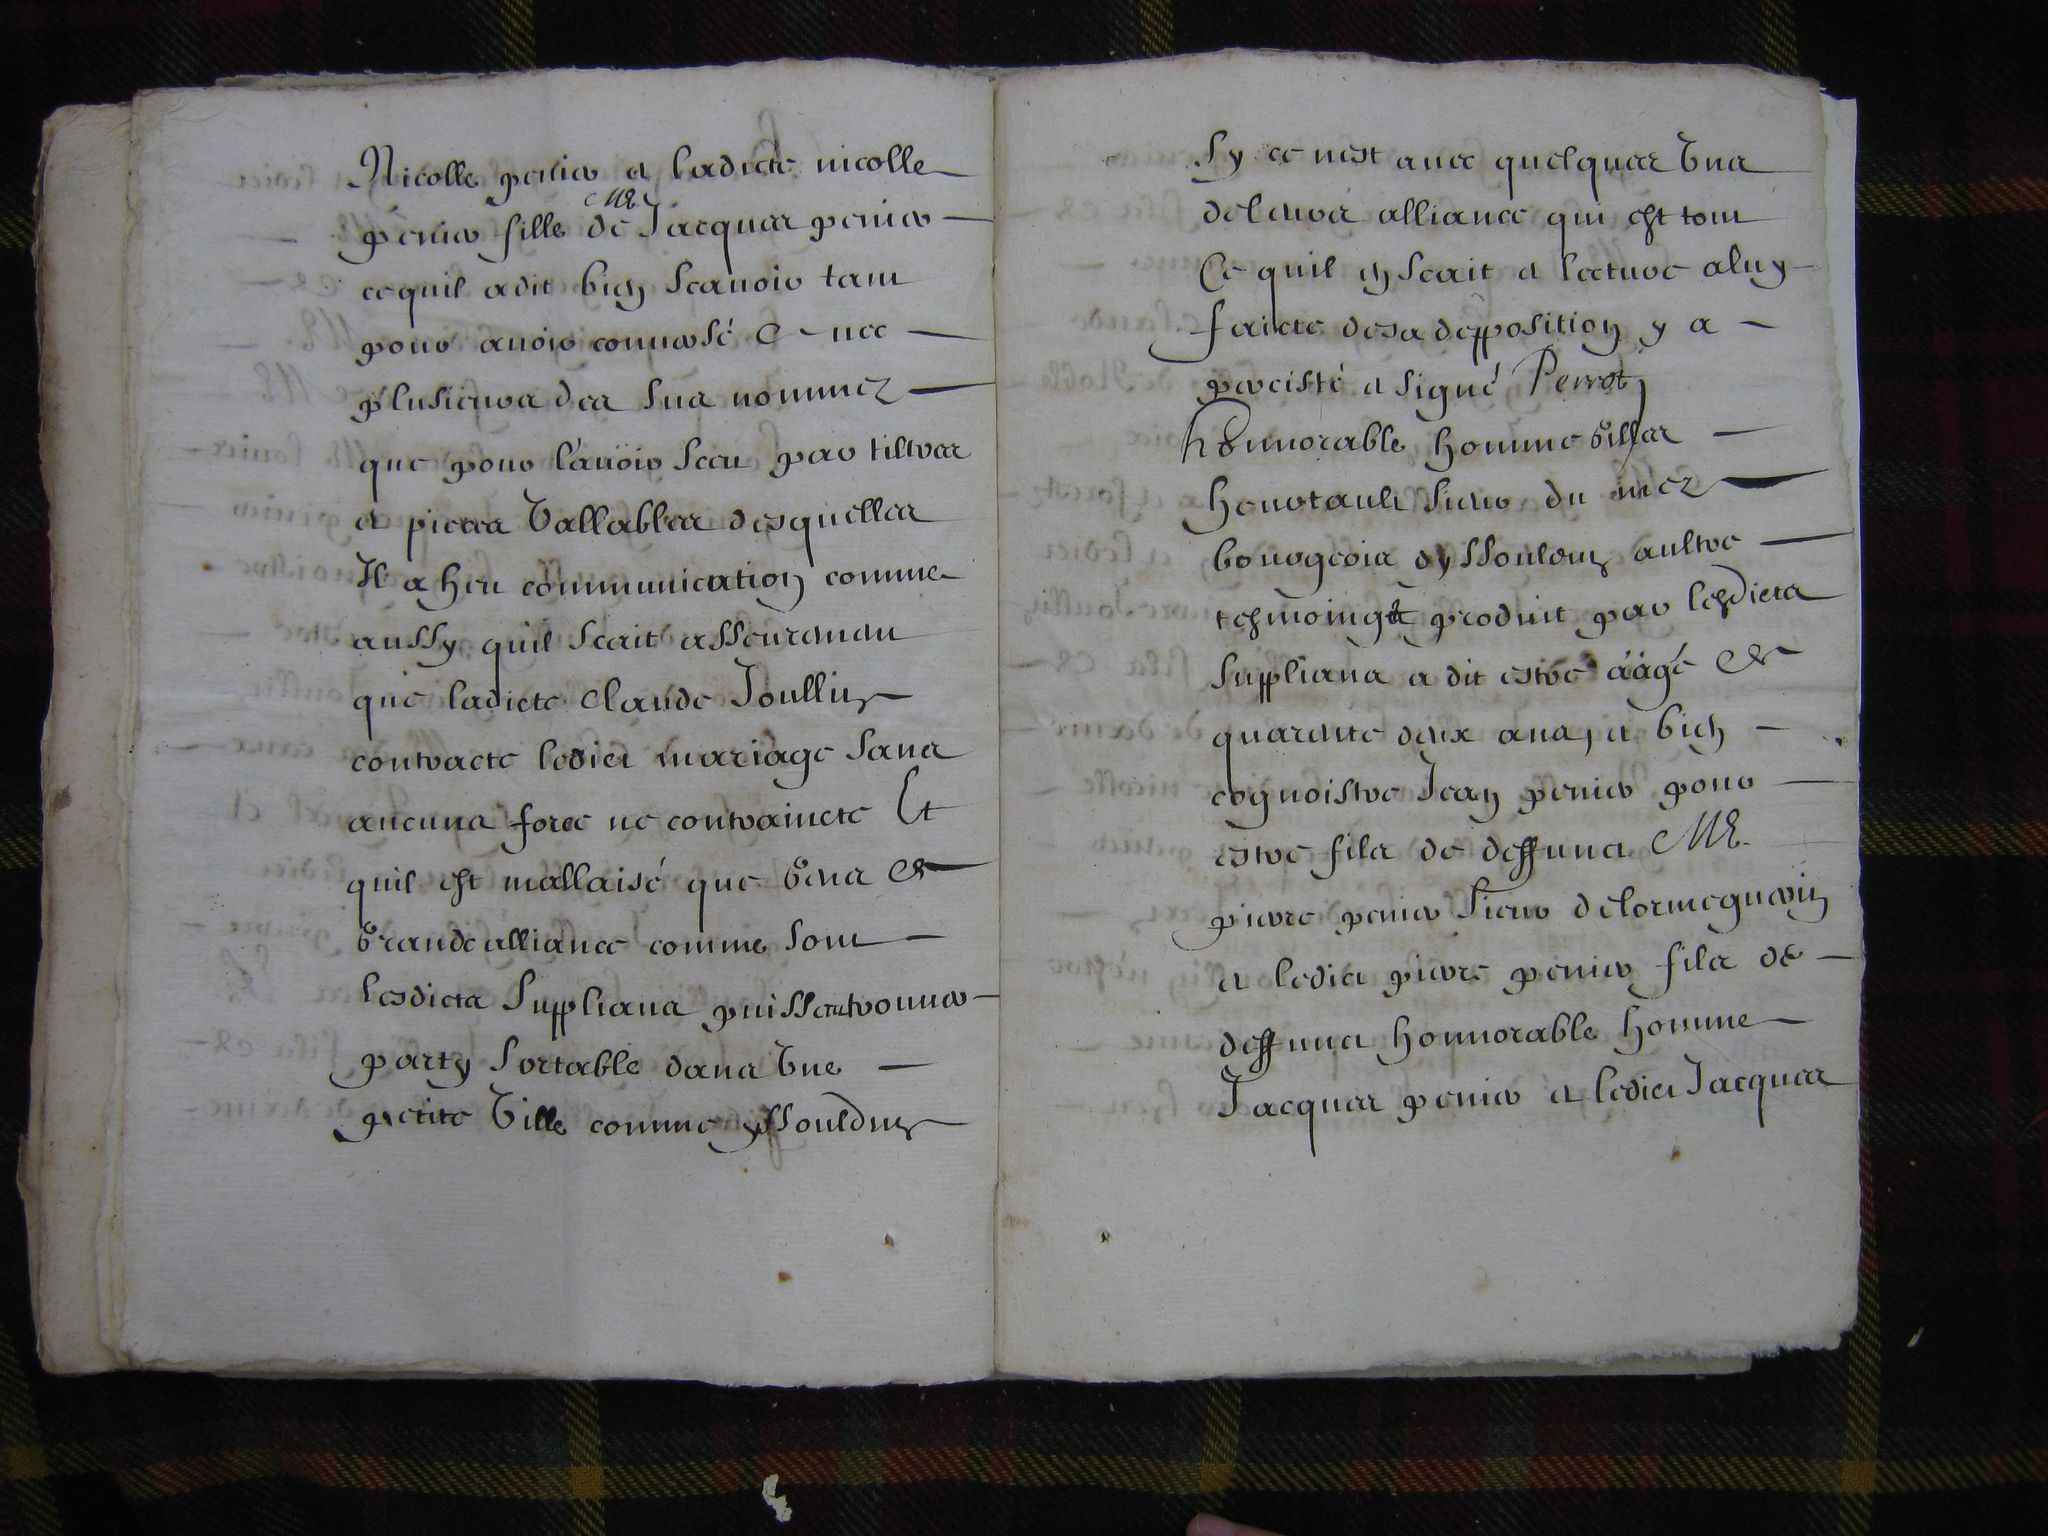 Nicolle perier et ladicte nicolle
perier fille de Me Jacques perier
ce quil a dit bien scavoir tant
pour avoir conversé & nec
plusieurs des sus nommez
que pour lavoir sceu par tiltres
et pieces vallables desquelles
Il a heu communication comme
aussy quil scait asseurement
que ladicte claude Joullin
contracte ledict mariage sans
aucune force ne contraincte Et
quil est mallaisé que gens de
grande alliance comme sont
lesdicts suppliants puissent trouver
party sortable dans une
petite ville comme yssouldun
sy ce nest avec quelques uns
de leurs alliance qui est tout
Ce quil en scait et lecture a luy
faicte de sa depposition y a
percisté et signé Perrot
honnorable homme gilles
heurtault sieur du mez
bourgeois dyssouldun aultre
tesmoing produit par lesdicts
suppliants a dit estre aagé de
quarente deux ans, et bien
cognoistre Jean perier pour
estre fils de deffunct Me
pierre perier sieur de
et ledict pierre perier fils de
deffunct honnorable homme
Jacques perier et ledict Jacques